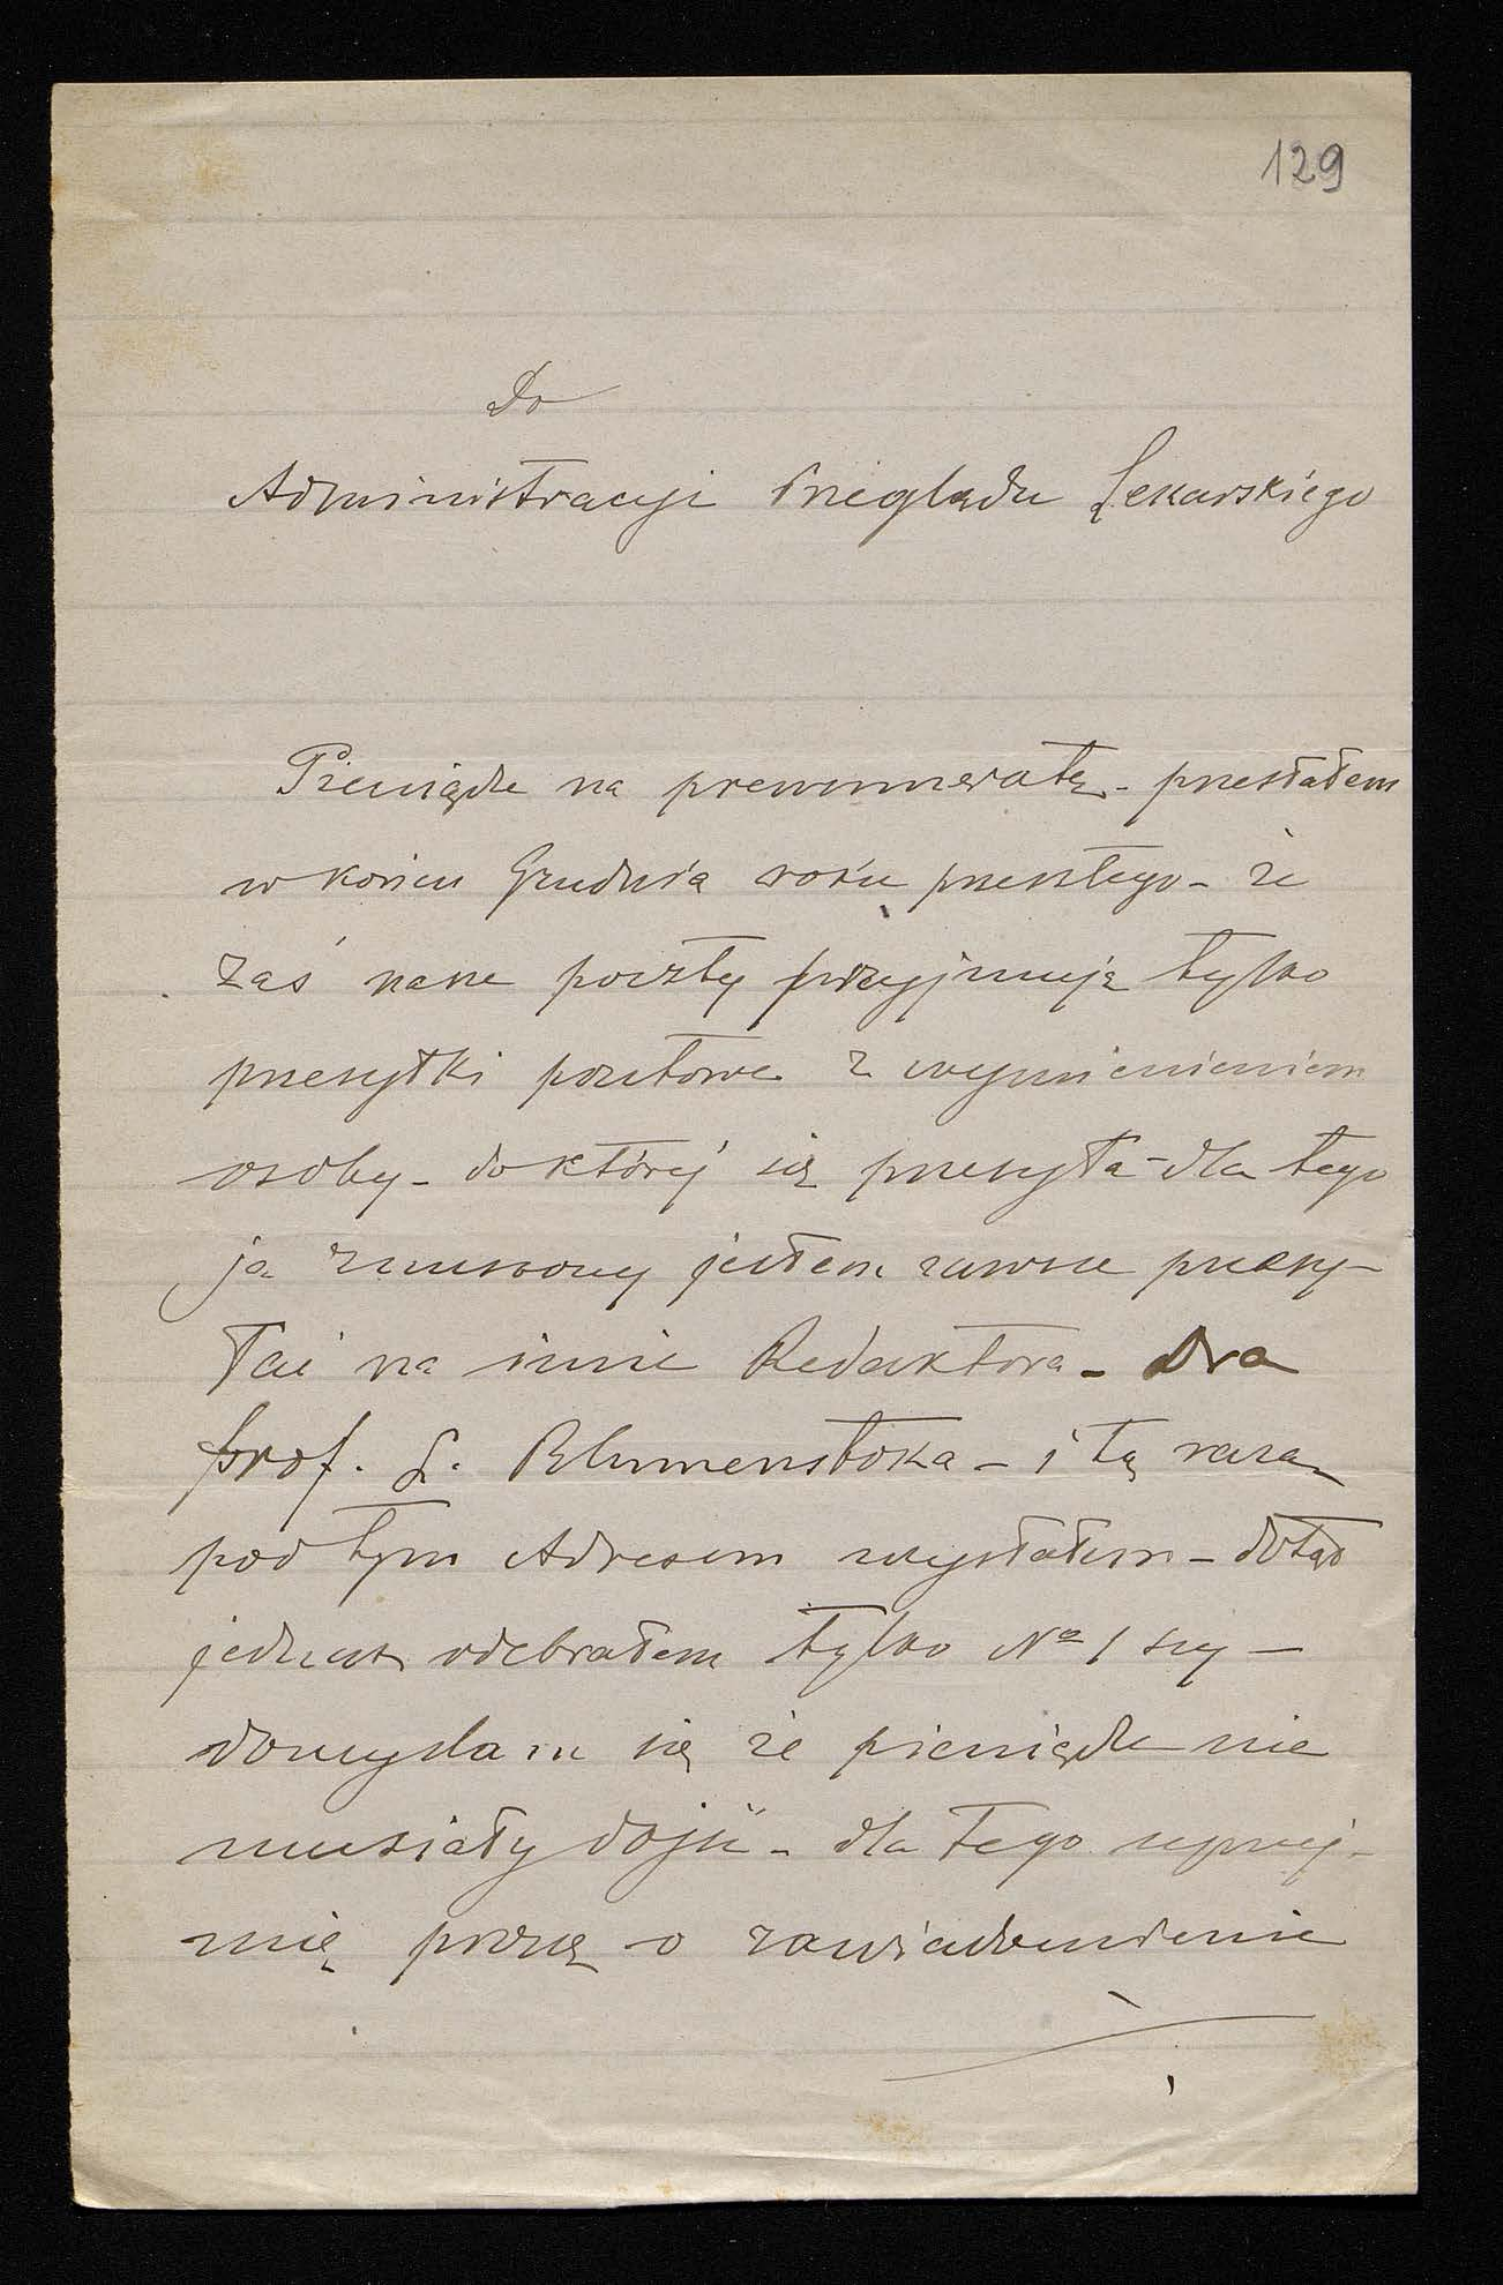 129
Do
Administracyi Przeglądu Lekarskiego
Pieniądze na prenumeratę - przesłałem
w końcu Grudnia roku przeszłego - że
zaś nasze poczty przyjmują tylko
przesyłki pocztowe z wymienieniem
osoby - do której się przesyła - dla tego
ja zmuszony jestem zawsze przesy-
łać na imie Redaktora - Dra
prof. L. Blumenstoka - i tą razą
pod tym Adresem wysłałem - dotąd
jednak odebrałem tylko No 1szy -
domyślam się że pieniądze nie
musiały dojść - dla tego uprzej-
mię proszę o zawiadomienie